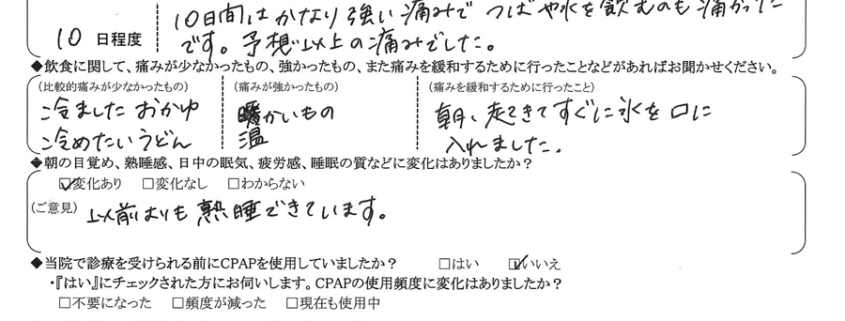 10日間はかなり強い痛みで つばや水を飲むのも痛かった
10 日程度
です。予想以上の痛みでした。
◆飲食に関して、痛みが少なかったもの、強かったもの、また痛みを緩和するために行ったことなどがあればお聞かせください。
(比較的痛みが少なかったもの) (痛みが強かったもの) (痛みを緩和するために行ったこと)
冷ました おかゆ 暖かいもの 朝、起きてすぐに氷を口に
冷めたいうどん 温 入れました。
◆朝の目覚め、熟睡感、日中の眠気、疲労感、睡眠の質などに変化はありましたか?
☑変化あり □変化なし □わからない
(ご意見) 以前よりも熟睡できています。
◆当院で診療を受けられる前にCPAPを使用していましたか? □はい ☑いいえ
・『はい』にチェックされた方にお伺いします。CPAPの使用頻度に変化はありましたか?
□不要になった □頻度が減った □現在も使用中